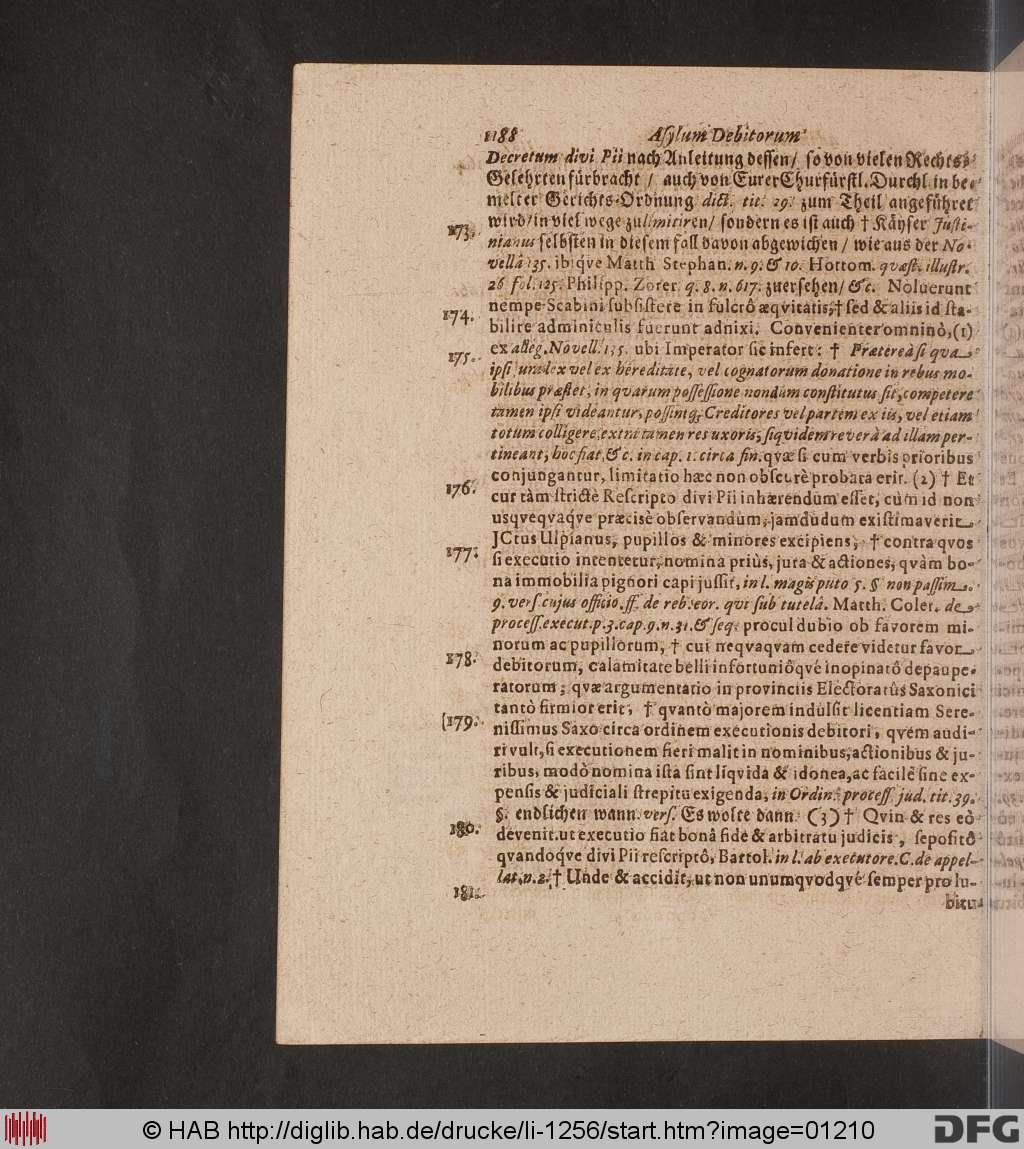 1188 Asylum Debitorum
Decretum divi Pii nach Anleitung dessen/ so von vielen Rechts-
Gelehrten fürbracht / auch von Eurer Churfürstl. Durchl. in be-
melter Gerichts-Ordnung dict. tit. 39. zum Theil angeführet
wird/ in viel wege zu limitiren/ sondern es ist auch † Käyser Justi-
173. nianus selbsten in diesem fall davon abgewichen / wie aus der No-
vellâ 135. ibiqve Matth Stephan. n. 9. & 10. Hottom. qvæst. illustr.
26 fol. 125. Philipp. Zorer. q. 8. n. 617. zuersehen/ &c. Noluerunt
nempe Scabini subsistere in fulcrô æqvitatis, † sed & aliis id sta-
174. bilire adminiculis fuerunt adnixi. Convenienter omninò, (1)
ex alleg. Novell. 135. ubi Imperator sic infert: † Prætereà si qua
175. ipsi jura lex vel ex hereditate, vel cognatorum donatione in rebus mo-
bilibus præstet, in qvarum possessione nondum constitutus sit, competere
tamen ipsi videantur, possintq; Creditores vel partem ex iis, vel etiam
totum colligere, extra tamen res uxoris, siqvidem reverà ad illam per-
tineant, hoc fiat, &c. in cap. 1. circa fin. qvæ si cum verbis prioribus
conjungantur, limitatio hæc non obscurè probata erit. (2) † Et
176. cur tàm strictè Rescripto divi Pii inhærendum esset, cùm id non
usqveqvaqve præcisè observandum, jamdudum existimaverit
JCtus Ulpianus, pupillos & minores excipiens, † contra qvos
177. si executio intentetur, nomina priùs, jura & actiones, qvàm bo-
na immobilia pignori capi jussit, in l. magis puto 5. § non passim
9. vers. cujus officio. ff. de reb. eor. qvi sub tutelâ. Matth. Coler. de
process. execut. p. 3. cap. 9. n. 31. & seq. procul dubio ob favorem mi-
norum ac pupillorum, † cui neqvaqvam cedere videtur favor
178. debitorum, calamitate belli infortuniôqve inopinatô depaupe-
ratorum; qvæ argumentatio in provinciis Electoratûs Saxonici
tantò firmior erit, † qvantò majorem indulsit licentiam Sere-
(179. nissimus Saxo circa ordinem executionis debitori, qvem audi-
ri vult, si executionem fieri malit in nominibus, actionibus & ju-
ribus, modò nomina ista sint liqvida & idonea, ac facilè sine ex-
pensis & judiciali strepitu exigenda, in Ordin. process. jud. tit. 39.
§. endlichen wann. vers. Es wolte dann. (3) † Qvin & res eò
180. devenit, ut executio fiat bonâ fide & arbitratu judicis, sepositô
qvandoqve divi Pii rescriptô, Bartol. in l. ab executore. C. de appel-
lat. n. 2. † Unde & accidit, ut non unumqvodqve semper pro lu-
181.
bitu
© HAB http://diglib.hab.de/drucke/li-1256/start.htm?image=01210
DFG